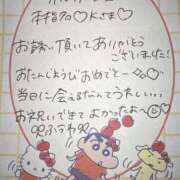 本指名♡Kさま♡
お誘い頂いてありがとう
ございました!
おたんじょうびおめでとー
当日に会えるなんてうれしい
お祝いできてよかったよ〜